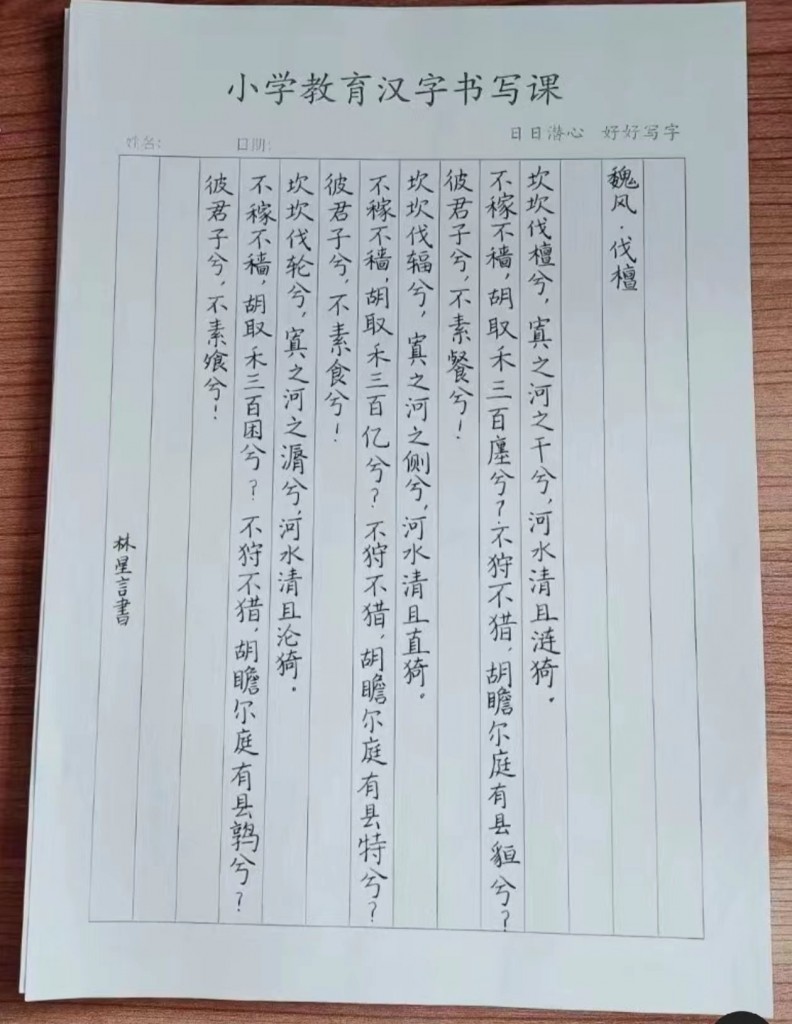 小学教育汉字书写课
日日潜心 好好写字
姓名: 日期:
魏风·伐檀
坎坎伐檀兮,寘之河之干兮,河水清且涟猗。
不稼不穑,胡取禾三百廛兮?不狩不猎,胡瞻尔庭有县貆兮?
彼君子兮,不素餐兮!
坎坎伐辐兮,寘之河之侧兮,河水清且直猗。
不稼不穑,胡取禾三百亿兮?不狩不猎,胡瞻尔庭有县特兮?
彼君子兮,不素食兮!
坎坎伐轮兮,寘之河之漘兮,河水清且沦猗。
不稼不穑,胡取禾三百囷兮?不狩不猎,胡瞻尔庭有县鹑兮?
彼君子兮,不素飧兮!
林星言書